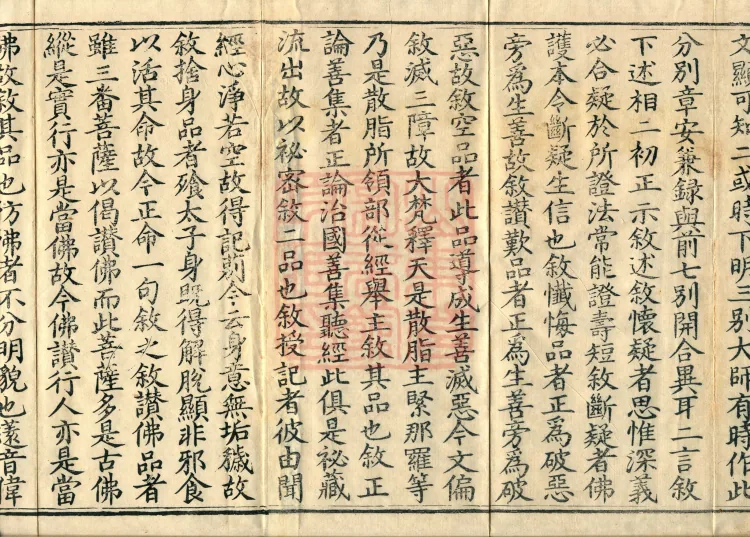 文顯可知二或時下明三別大師有時作此
分別章安兼錄與前七別開合異耳二言敘
下述相二初正示敘述敘懷疑者思惟深義
必合疑於所證法常能證壽短敘斷疑者佛
護本令斷疑生信也敘懺悔品者正爲破惡
旁爲生善故敘讃歎品者正爲生善旁爲破
惡故敘空品者此品導成生善滅惡今文偏
敘滅三障故大梵釋天是散脂主緊那羅等
乃是散脂所領部從經舉主敘其品也敘正
論善集者正論治國善集聽經此俱是祕藏
流出故以祕密敘二品也敘授記者彼由聞
經心淨若空故得記莂今云身意無垢穢故
敘捨身品者飱太子身既得解脫顯非邪食
以活其命故今正命一句敘之敘讃佛品者
雖三番菩薩以偈讃佛而此菩薩多是古佛
縱是實行亦是當佛故今佛讃行人亦是當
佛故敘其品也彷佛者不分明貌也音偉